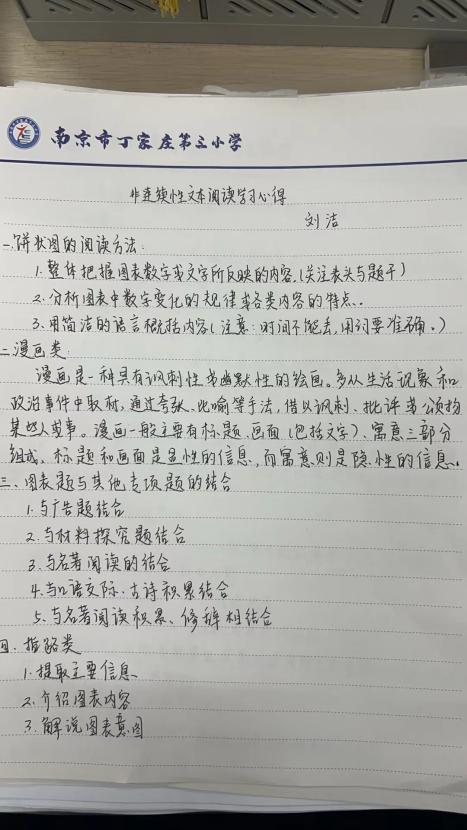 南京市丁家庄第三小学
非连续性文本阅读学习心得
刘洁
一.饼状图的阅读方法:
1.整体把握图表数字或文字所反映的内容.(关注表头与题干)
2.分析图表中数字变化的规律或各类内容的特点..
3.用简洁的语言概括内容(注意:时间不能丢,用词要准确.)
二.漫画类.
漫画是一种具有讽刺性或幽默性的绘画。多从生活现象和
政治事件中取材,通过夸张、比喻等手法,借以讽刺、批评或颂扬
某些人或事。漫画一般主要有标题、画面(包括文字)、寓意三部分
组成。标题和画面是显性的信息,而寓意则是隐性的信息。
三、图表题与其他专项题的结合
1.与广告题结合
2.与材料探究题结合
3.与名著阅读的结合
4.与口语交际、古诗积累结合
5.与名著阅读积累、修辞相结合
四.指路类
1.提取主要信息、
2.介绍图表内容
3.解说图表意图